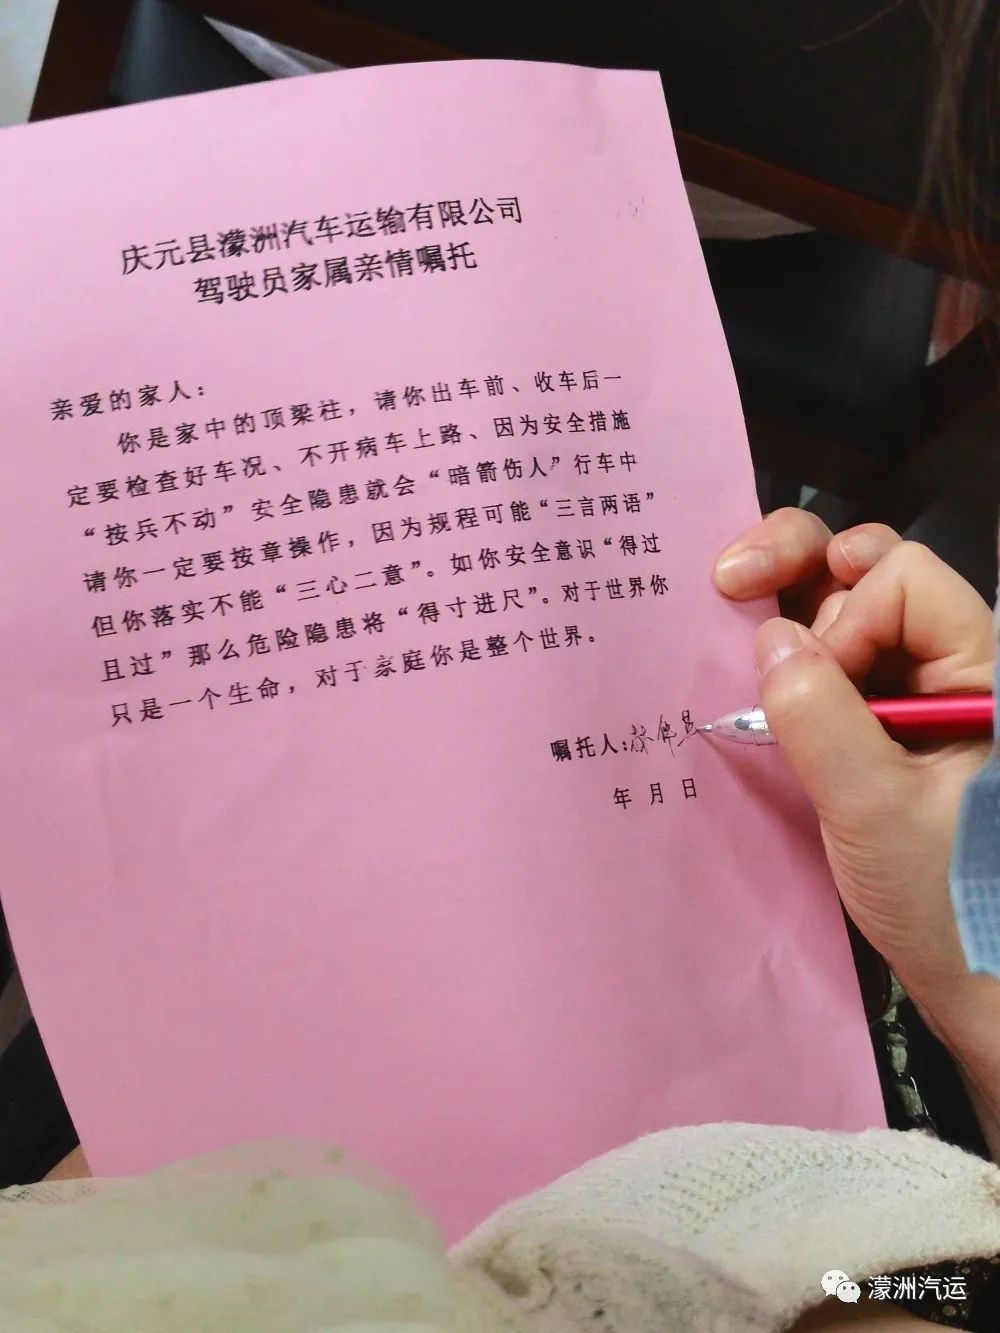 庆元县濛洲汽车运输有限公司
驾驶员家属亲情嘱托
亲爱的家人：
你是家中的顶梁柱，请你出车前、收车后一
定要检查好车况、不开病车上路、因为安全措施
“按兵不动”安全隐患就会“暗箭伤人”行车中
请你一定要按章操作，因为规程可能“三言两语”
但你落实不能“三心二意”。如你安全意识“得过
且过”那么危险隐患将“得寸进尺”。对于世界你
只是一个生命，对于家庭你是整个世界。
嘱托人：
年 月 日
濛洲汽运